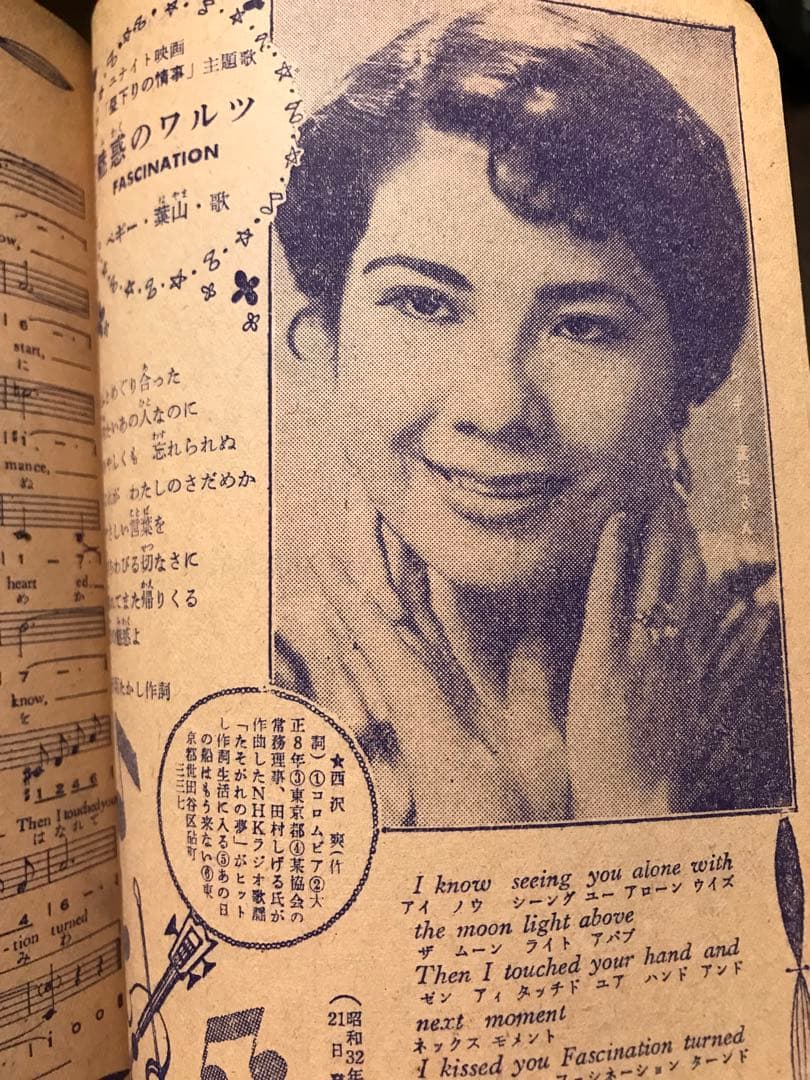 ユナイト映画
「昼下りの情事」主題歌
魅惑のワルツ
FASCINATION
ペギー・葉山・歌
めぐり合った
あの人なのに
しくも 忘れられぬ
が わたしのさだめか
さしい言葉を
わびる切なさに
てまた帰りくる
魅惑よ
たかし作詞
★西沢爽(作
詞)①コロムビア②大
正8年③東京都④某協会の
常務理事、田村しげる氏が
作曲したNHKラジオ歌謡
「たそがれの夢」がヒット
し作詞生活に入る⑤あの日
の船はもう来ない⑥東
京都世田谷区砧町
三三七
I know seeing you alone with
アイ ノウ シーング ユー アローン ウイズ
the moon light above
ザ ムーン ライト アバブ
Then I touched your hand and
ゼン アイ タッチド ユア ハンド アンド
next moment
ネックス モメント
I kissed you Fascination turned
ァシネーション ターンド
(昭和32年
21日
ow,
start,
に
mance,
ぬ
heart ed
め か
know,
を
Then I touched your
はなれて
-tion turned
みわ